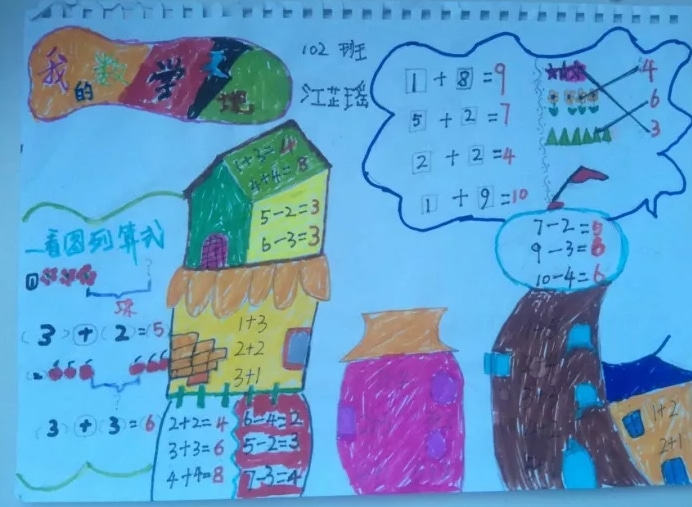 我的数学天地
102 班
江芷瑶
1+8=9
5+2=7
2+2=4
1+9=10
4
6
3
1+3=4
4+4=8
5-2=3
6-3=3
看图列算式
5朵
(3)+(2)=(5
(3)+(3)=6
1+3
2+2
3+1
2+2=4
3+3=6
4+4=8
6-4=2
5-2=3
7-3=4
7-2=5
9-3=6
10-4=6
1+2
2+1